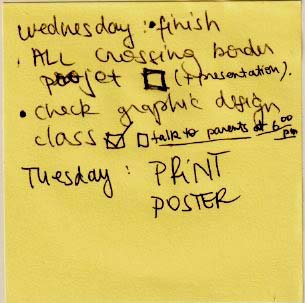 wednesday: • finish
• ALL crossing border
project ☐ (+ presentation).
• check graphic design
class ☑ ☐ talk to parents at 6:00 pm
Tuesday: PRINT
POSTER